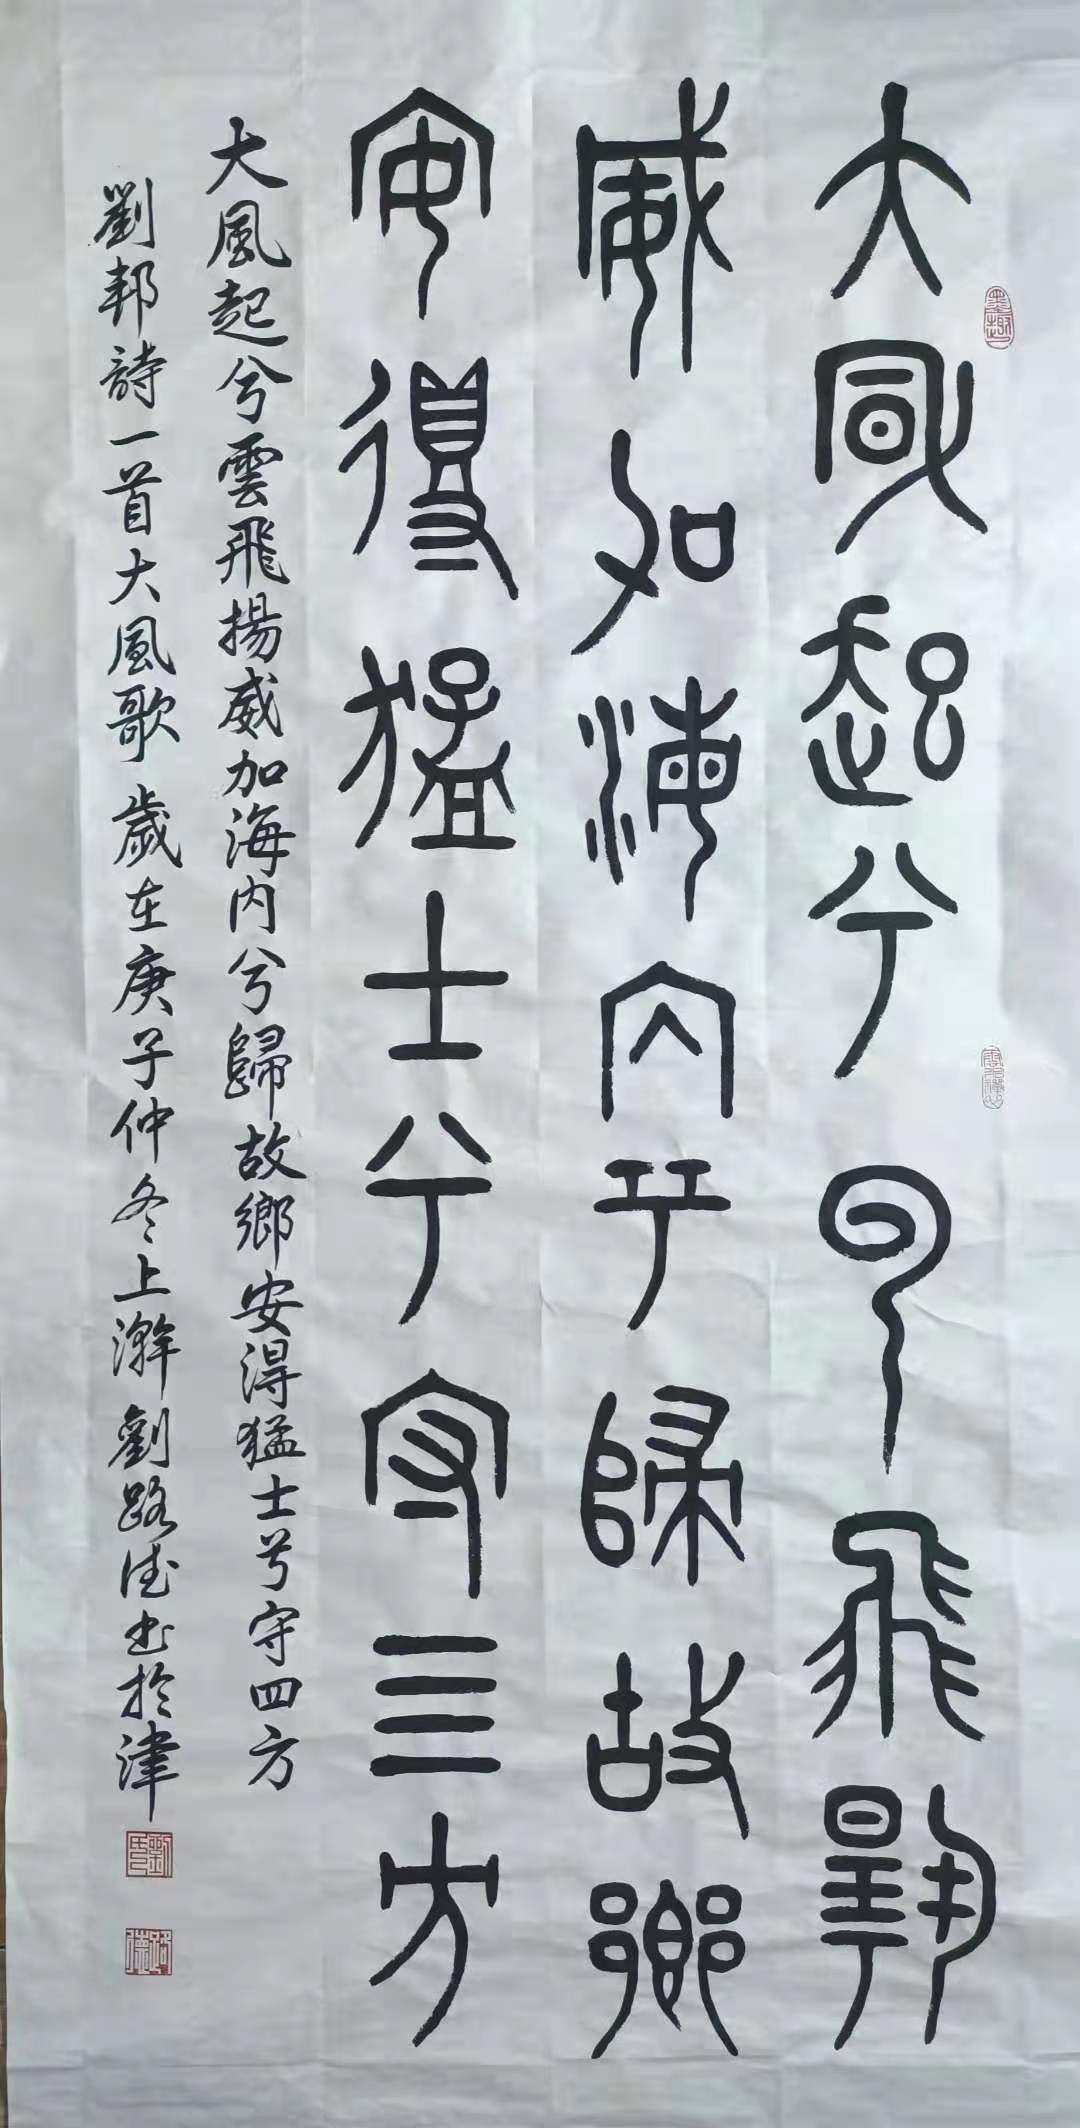 大風起兮雲飛揚
威加海内兮歸故鄉
安得猛士兮守四方
大風起兮雲飛揚威加海内兮歸故鄉安得猛士兮守四方
劉邦詩一首大風歌歲在庚子仲冬上澣劉路德书於津
墨趣
劉印
路德